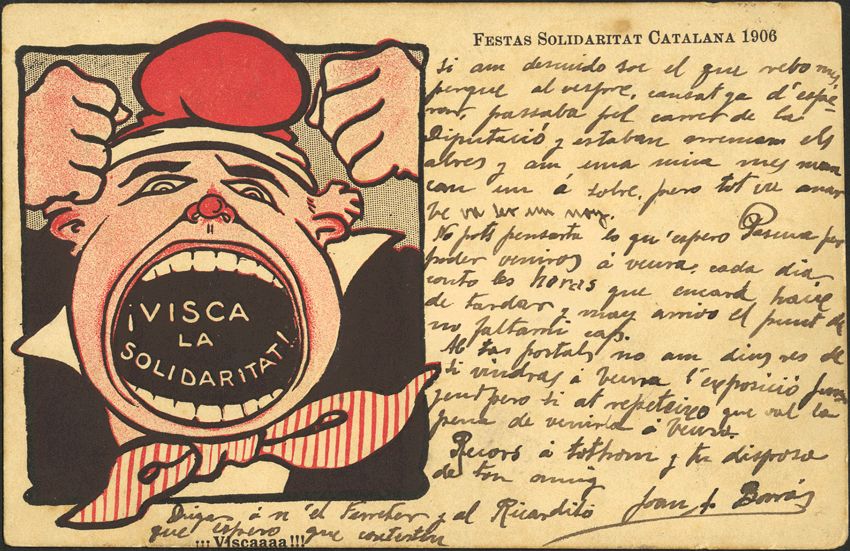 FESTAS SOLIDARITAT CATALANA 1906
¡VISCA
LA
SOLIDARITAT!
Si am descuido soc el que rebo mes,
perque al vespre, cansat ja d'espe-
rar, passaba pel carrer de la
Diputació y estaban arrencan els
abres y am una mica mes man
can un á sobre, pero tot va anar
be va ser un
No pots pensarte lo qu'espero Pascua per
poder veniros á veura, cada dia
conto las horas que encara haig
de tardar y may arrivo el punt de
no faltarni cap.
Ab tas postals no am dius res de
si vindras á veura l'exposició
pero si at repeteixo que val la
pena de venirla á veura.
Recors á tothom y tu disposa
de ton amig
Joan J. Borrás
Digas á n'el Ferreher y al Ricardito
que espero que contestin
!!!Viscaaaa!!!